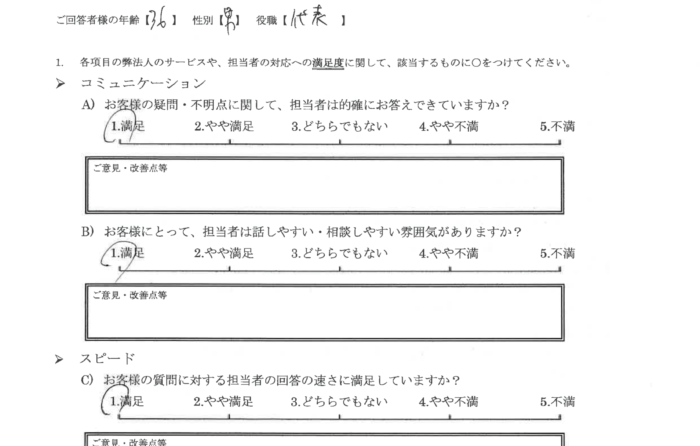 ご回答者様の年齢【36】 性別【男】 役職【代表】
1. 各項目の弊法人のサービスや、担当者の対応への満足度に関して、該当するものに○をつけてください。
➢ コミュニケーション
A) お客様の疑問・不明点に関して、担当者は的確にお答えできていますか？
1.満足 2.やや満足 3.どちらでもない 4.やや不満 5.不満
ご意見・改善点等
B) お客様にとって、担当者は話しやすい・相談しやすい雰囲気がありますか？
1.満足 2.やや満足 3.どちらでもない 4.やや不満 5.不満
ご意見・改善点等
➢ スピード
C) お客様の質問に対する担当者の回答の速さに満足していますか？
1.満足 2.やや満足 3.どちらでもない 4.やや不満 5.不満
ご意見・改善点等